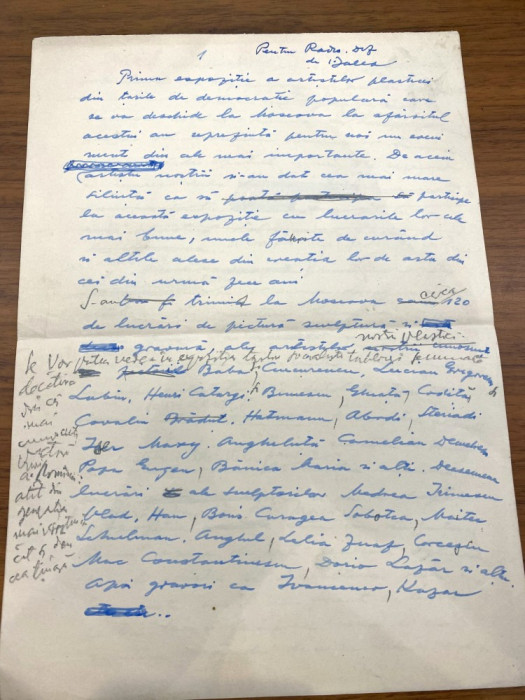 1
Pentru Radio. Dif
de : Jalea
Prima expoziție a artiștilor plastici
din țările de democrație populară care
se va deschide la Moscova la sfârșitul
acestui an reprezintă pentru noi un eveni
ment din ale mai importante. De aceia
artiștii noștrii s-au dat cea mai mare
silintă ca să participe
la această expoziție cu lucrările lor cele
mai bune, unele făurite de curând
și altele alese din creatia lor de artă din
cei din urmă zece ani
S-au trimis la Moscova circa 120
de lucrări de pictură sculptură și
gravură ale artiștilor noștri plastici
Se vor putea vedea în expoziție
Baba, Ciucurencu, Lucian Grigorescu
Labin, Henri Catargi, Bunescu, Ghiață, Codiță,
Covaliu Hatmanu, Abodi, Steriadi
Iser Maxy. Angheluță Camelian Demetrescu
Popa Eugen, Bănică Maria și alți. Deasemenea
lucrări ale sculptorilor Medrea Irimescu
Vlad, Han, Boris Caragea Sobotea, Maitec
Schulman. Anghel, Lelia Zuaf, Cocegiu
Mac Constantinescu, Dorio Lazăr și alți.
Apoi gravori ca Ivancenco, Kazar
mai
pictori
a României
atât din
mai vârstnică
cât și din
cea tînără